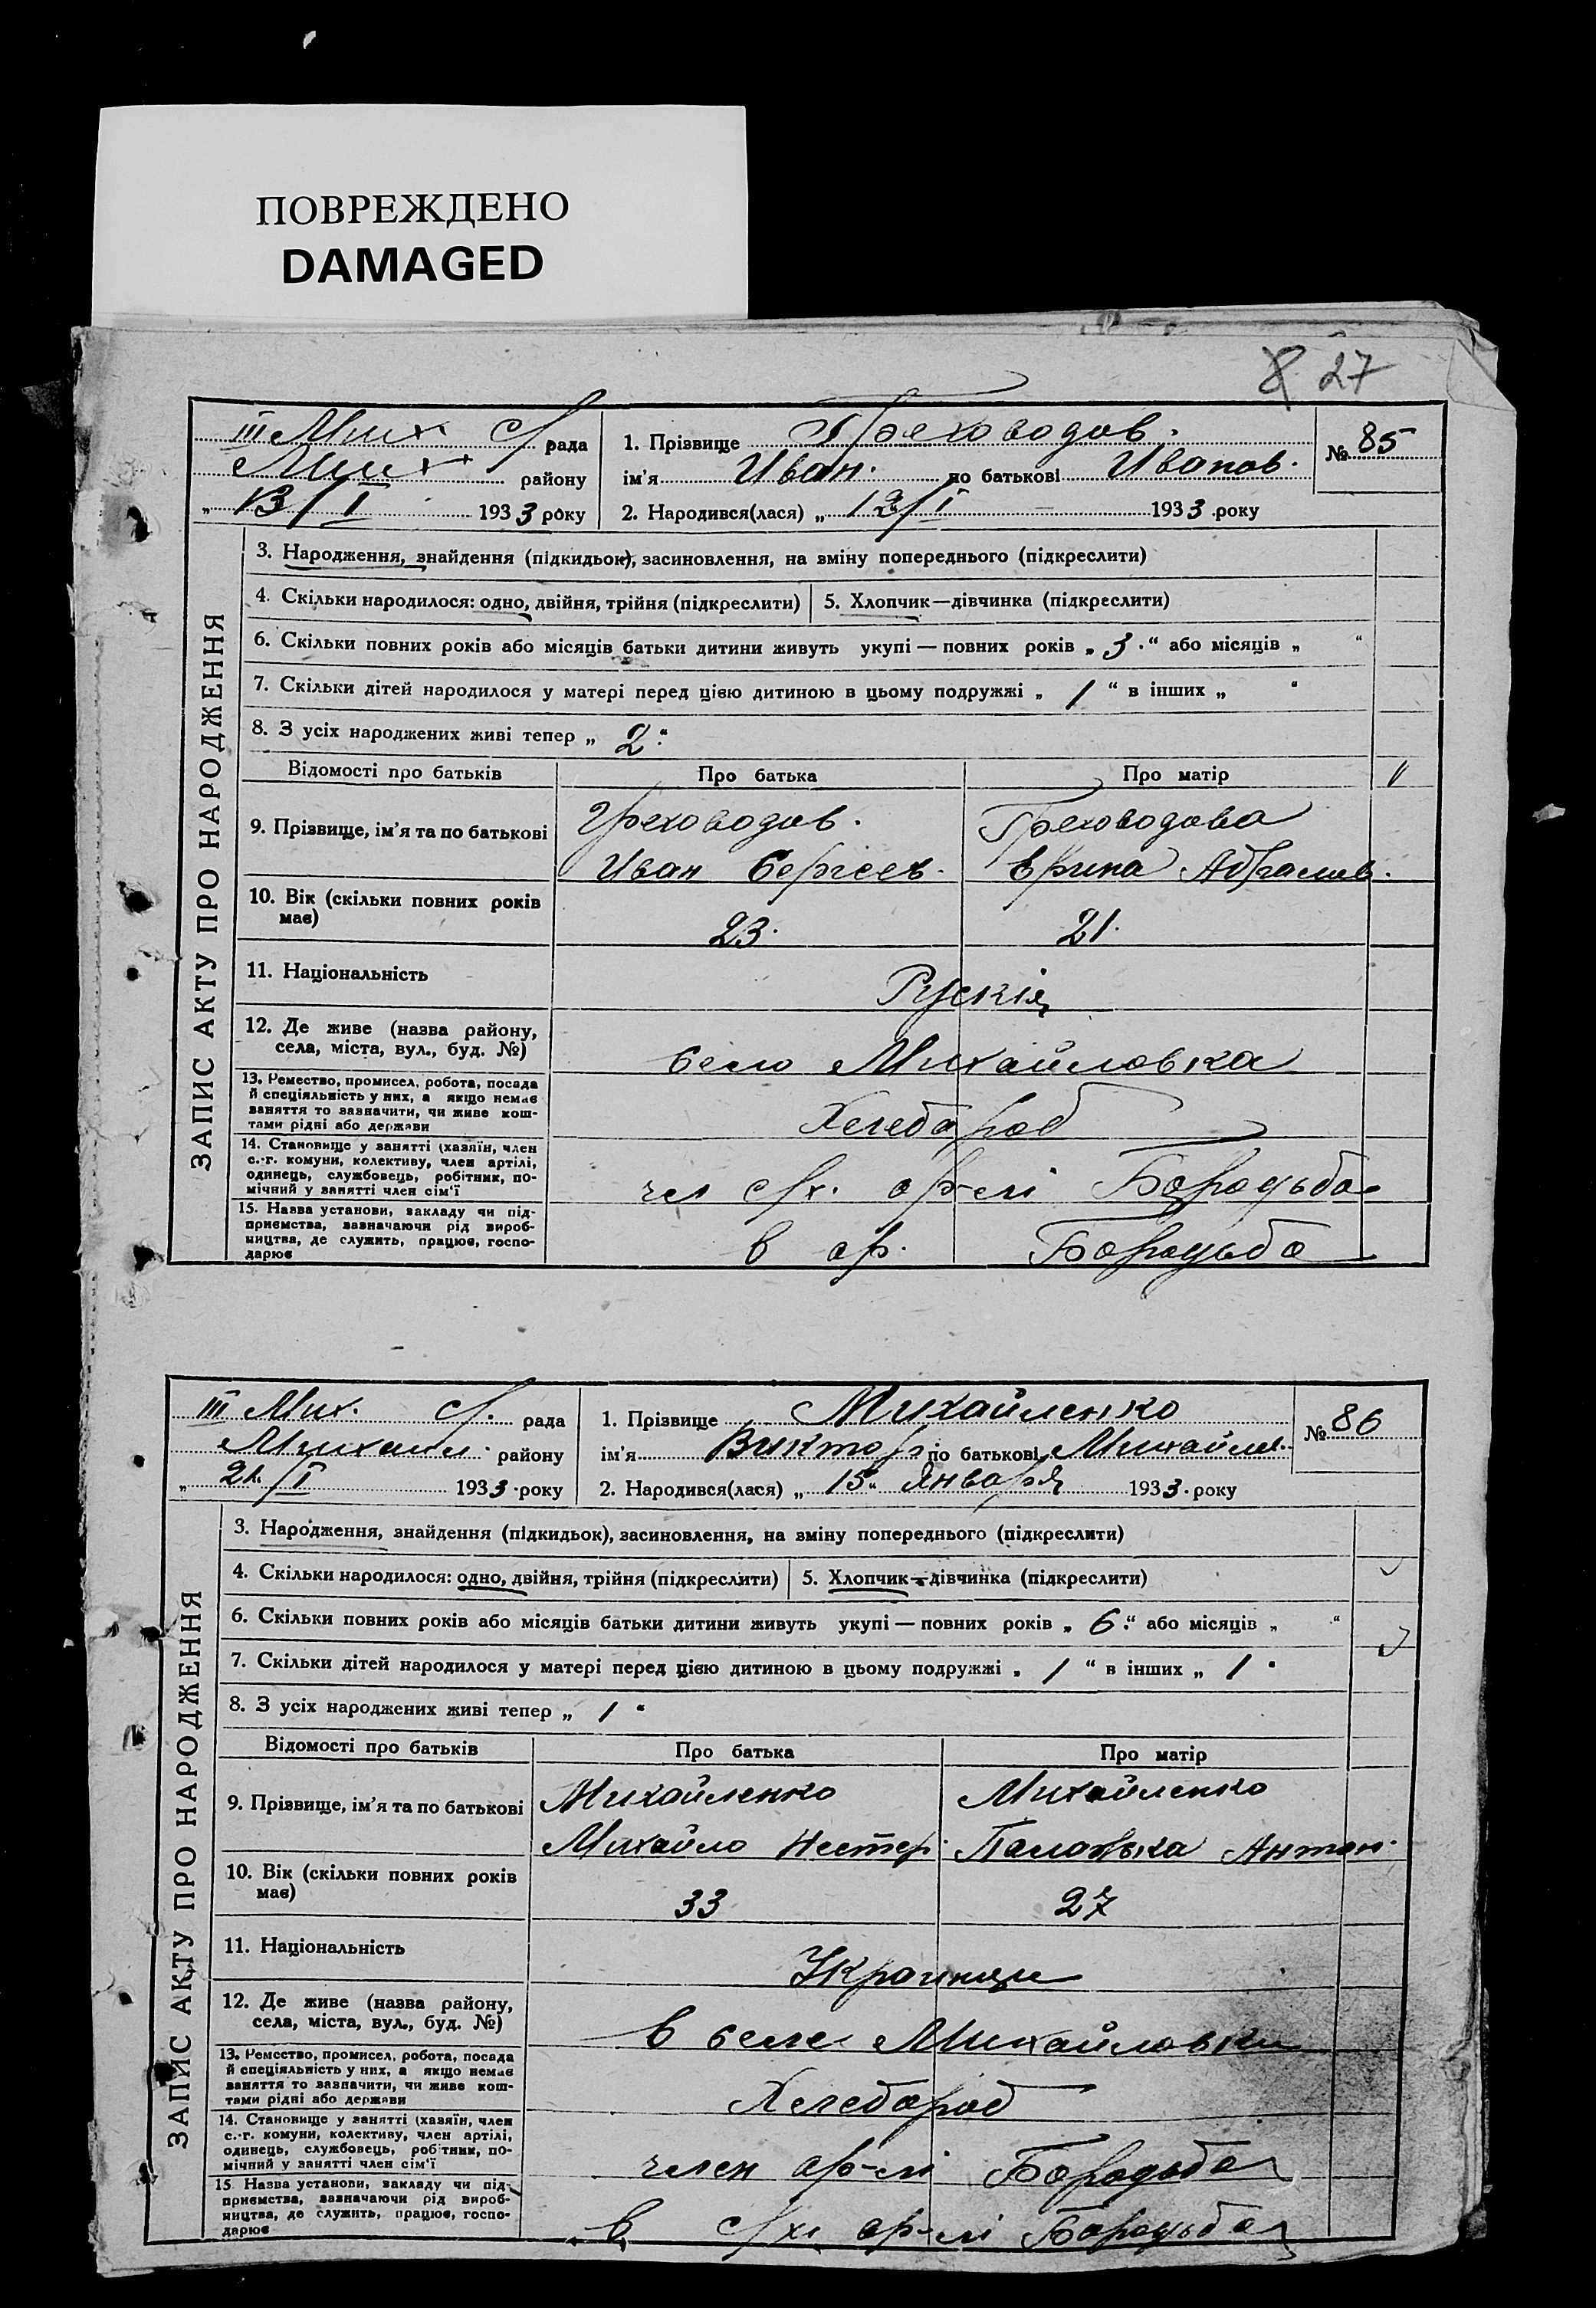 ПОВРЕЖДЕНО
DAMAGED
27
III Мих. с/рада
Мих. району
„ 13/I 1933 року
1. Прізвище Греховодов.
ім'я Иван. по батькові Иванов.
2. Народився(лася) „ 12/I 1933 року
№ 85
ЗАПИС АКТУ ПРО НАРОДЖЕННЯ
3. Народження, знайдення (підкидьок), засиновлення, на зміну попереднього (підкреслити)
4. Скільки народилося: одно, двійня, трійня (підкреслити) 5. Хлопчик—дівчинка (підкреслити)
6. Скільки повних років або місяців батьки дитини живуть укупі — повних років „ 3 “ або місяців „ “
7. Скільки дітей народилося у матері перед цією дитиною в цьому подружжі „ 1 “ в інших „ “
8. З усіх народжених живі тепер „ 2 “
Відомості про батьків Про батька Про матір
9. Прізвище, ім'я та по батькові
Греховодов. Греховодова
Иван Сергеев. Ерина Абрамов.
10. Вік (скільки повних років має) 23. 21.
11. Національність Рускія
12. Де живе (назва району, села, міста, вул., буд. №)
село Михайловка
13. Ремество, промисел, робота, посада
й спеціяльність у них, а якщо немає
заняття то зазначити, чи живе кош-
тами рідні або держави
Хлебороб
14. Становище у занятті (хазяїн, член
с.-г. комуни, колективу, член артілі,
одинець, службовець, робітник, по-
мічний у занятті член сім'ї
чл с/х. ар-лі Бородьба
15. Назва установи, закладу чи під-
приємства, зазначаючи рід вироб-
ництва, де служить, працює, госпо-
дарює
в ар. Бородьба
III Мих. с/. рада
Михайл. району
„ 21/I 1933 року
1. Прізвище Михайленко
ім'я Виктор по батькові Михайлов.
2. Народився(лася) „ 15 “ Января 1933 року
№ 86
ЗАПИС АКТУ ПРО НАРОДЖЕННЯ
3. Народження, знайдення (підкидьок), засиновлення, на зміну попереднього (підкреслити)
4. Скільки народилося: одно, двійня, трійня (підкреслити) 5. Хлопчик—дівчинка (підкреслити)
6. Скільки повних років або місяців батьки дитини живуть укупі — повних років „ 6 “ або місяців „ “
7. Скільки дітей народилося у матері перед цією дитиною в цьому подружжі „ 1 “ в інших „ 1 “
8. З усіх народжених живі тепер „ 1 “
Відомості про батьків Про батька Про матір
9. Прізвище, ім'я та по батькові
Михайленко Михайленко
Михайло Нестер. Антон.
10. Вік (скільки повних років має) 33 27
11. Національність Украинци
12. Де живе (назва району, села, міста, вул., буд. №)
в селе Михайловки
13. Ремество, промисел, робота, посада
й спеціяльність у них, а якщо немає
заняття то зазначити, чи живе кош-
тами рідні або держави
Хлебороб
14. Становище у занятті (хазяїн, член
с.-г. комуни, колективу, член артілі,
одинець, службовець, робітник, по-
мічний у занятті член сім'ї
член ар-лі Бородьба
15. Назва установи, закладу чи під-
приємства, зазначаючи рід вироб-
ництва, де служить, працює, госпо-
дарює
в с/х. ар-лі Бородьба